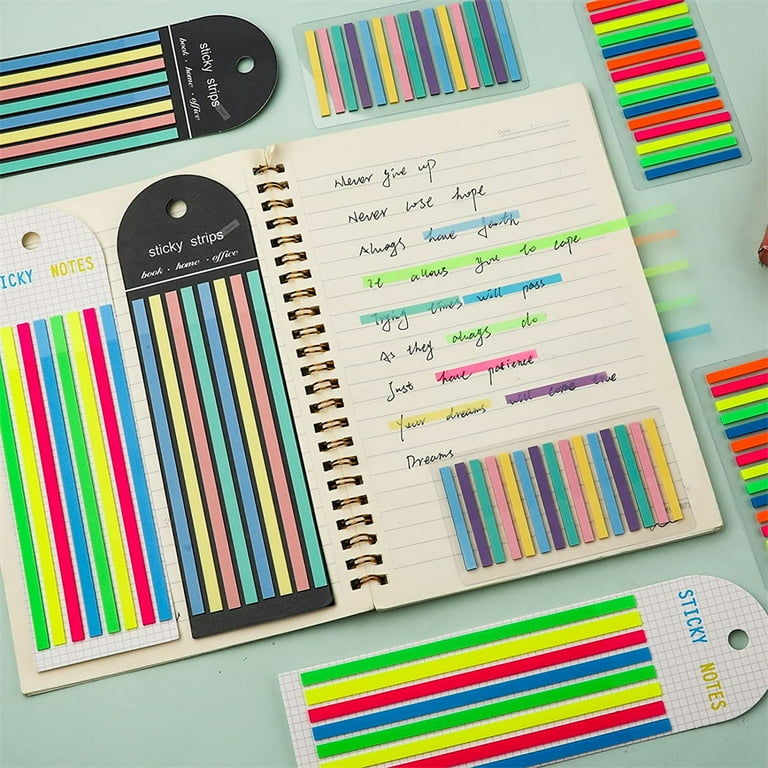 sticky strips
book · home · office
STICKY NOTES
sticky strips
book · home · office
Date
Never give up
Never lose hope
Always have faith
It allows you to cope
Trying times will pass
As they always do
Just have patience
Your dreams will come true
Dreams
STICKY NOTES